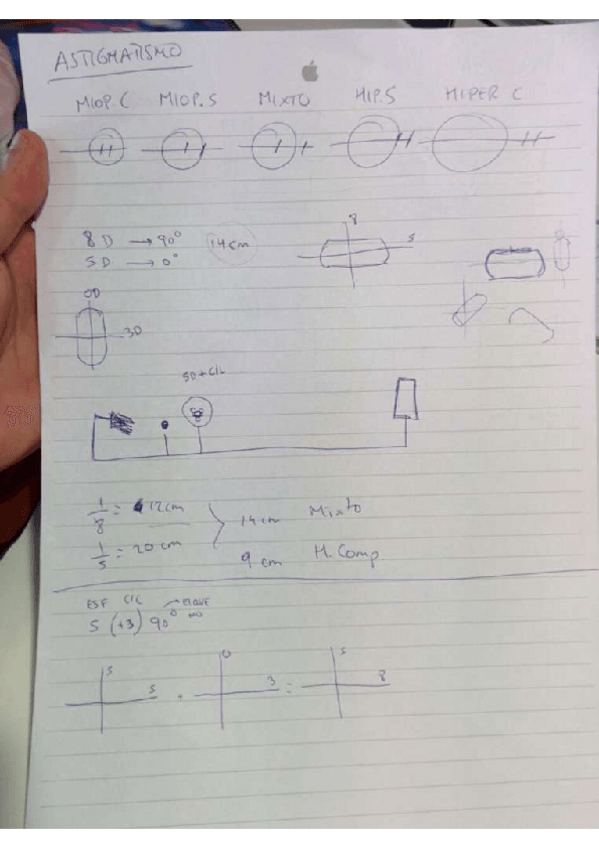 ASTIGMATISMO
MIOP. C MIOP. S MIXTO HIP. S HIPER C
8 D → 90° 14cm
5 D → 0°
8
5
0D
3D
5D+CIL
1/8 = 12cm
1/5 = 20 cm
14cm Mixto
9 cm H. Comp
ESF CIL
5 (+3) 90°
5 5 0 3 = 5 8